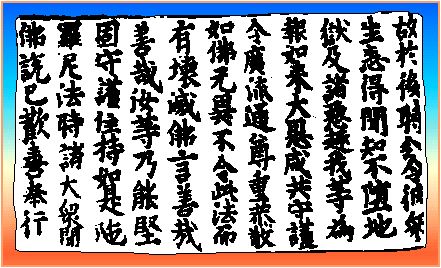 故於後時令彼衆
生悉得聞知不墮地
獄及諸惡趣我等為
報如来大恩咸共守護
令廣流通尊重恭敬
如佛无異不令此法而
有壞滅佛言善哉
善哉汝等乃能堅
固守護住持如是陁
羅尼法時諸大衆聞
佛說已歡喜奉行